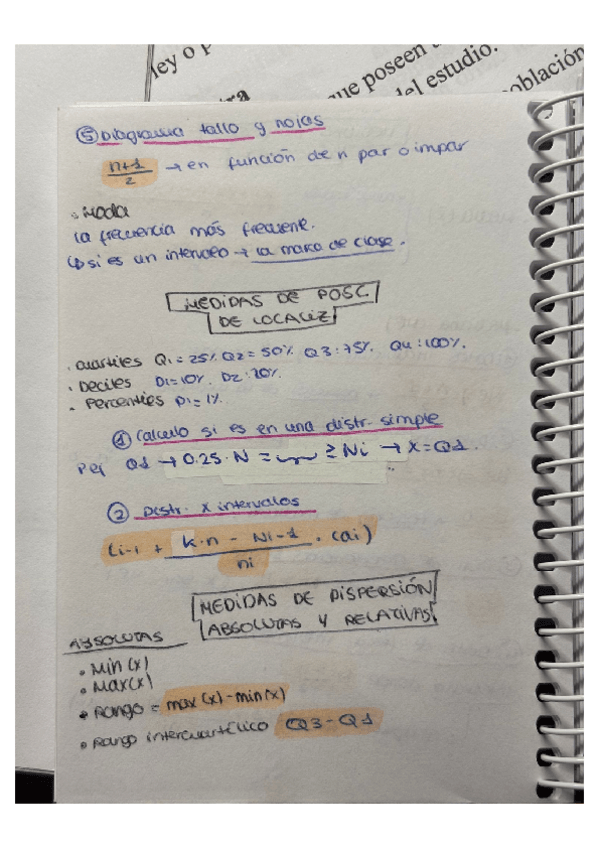 ley o p
ra
que poseen
del estudio.
oblación
⑤ Diagrama tallo y hojas
n+1/2 → en función de n par o impar
• Moda
la frecuencia más frecuente.
↳ si es un intervalo → la marca de clase.
MEDIDAS DE POSC.
DE LOCALIZ
• cuartiles Q1=25% Q2=50% Q3=75% Q4=100%.
• Deciles D1=10% D2=20%.
• Percentiles P1=1%
① Cálculo si es en una distr. simple
Pej Q1 → 0.25·N = ≥ Ni → X=Q1.
② Distr. x intervalos
Li-1 + k·n - Ni-1 / ni · (ai)
MEDIDAS DE DISPERSIÓN
ABSOLUTAS Y RELATIVAS
ABSOLUTAS
• Min(x)
• Max(x)
• Rango = max(x)-min(x)
• Rango intercuartílico Q3-Q1